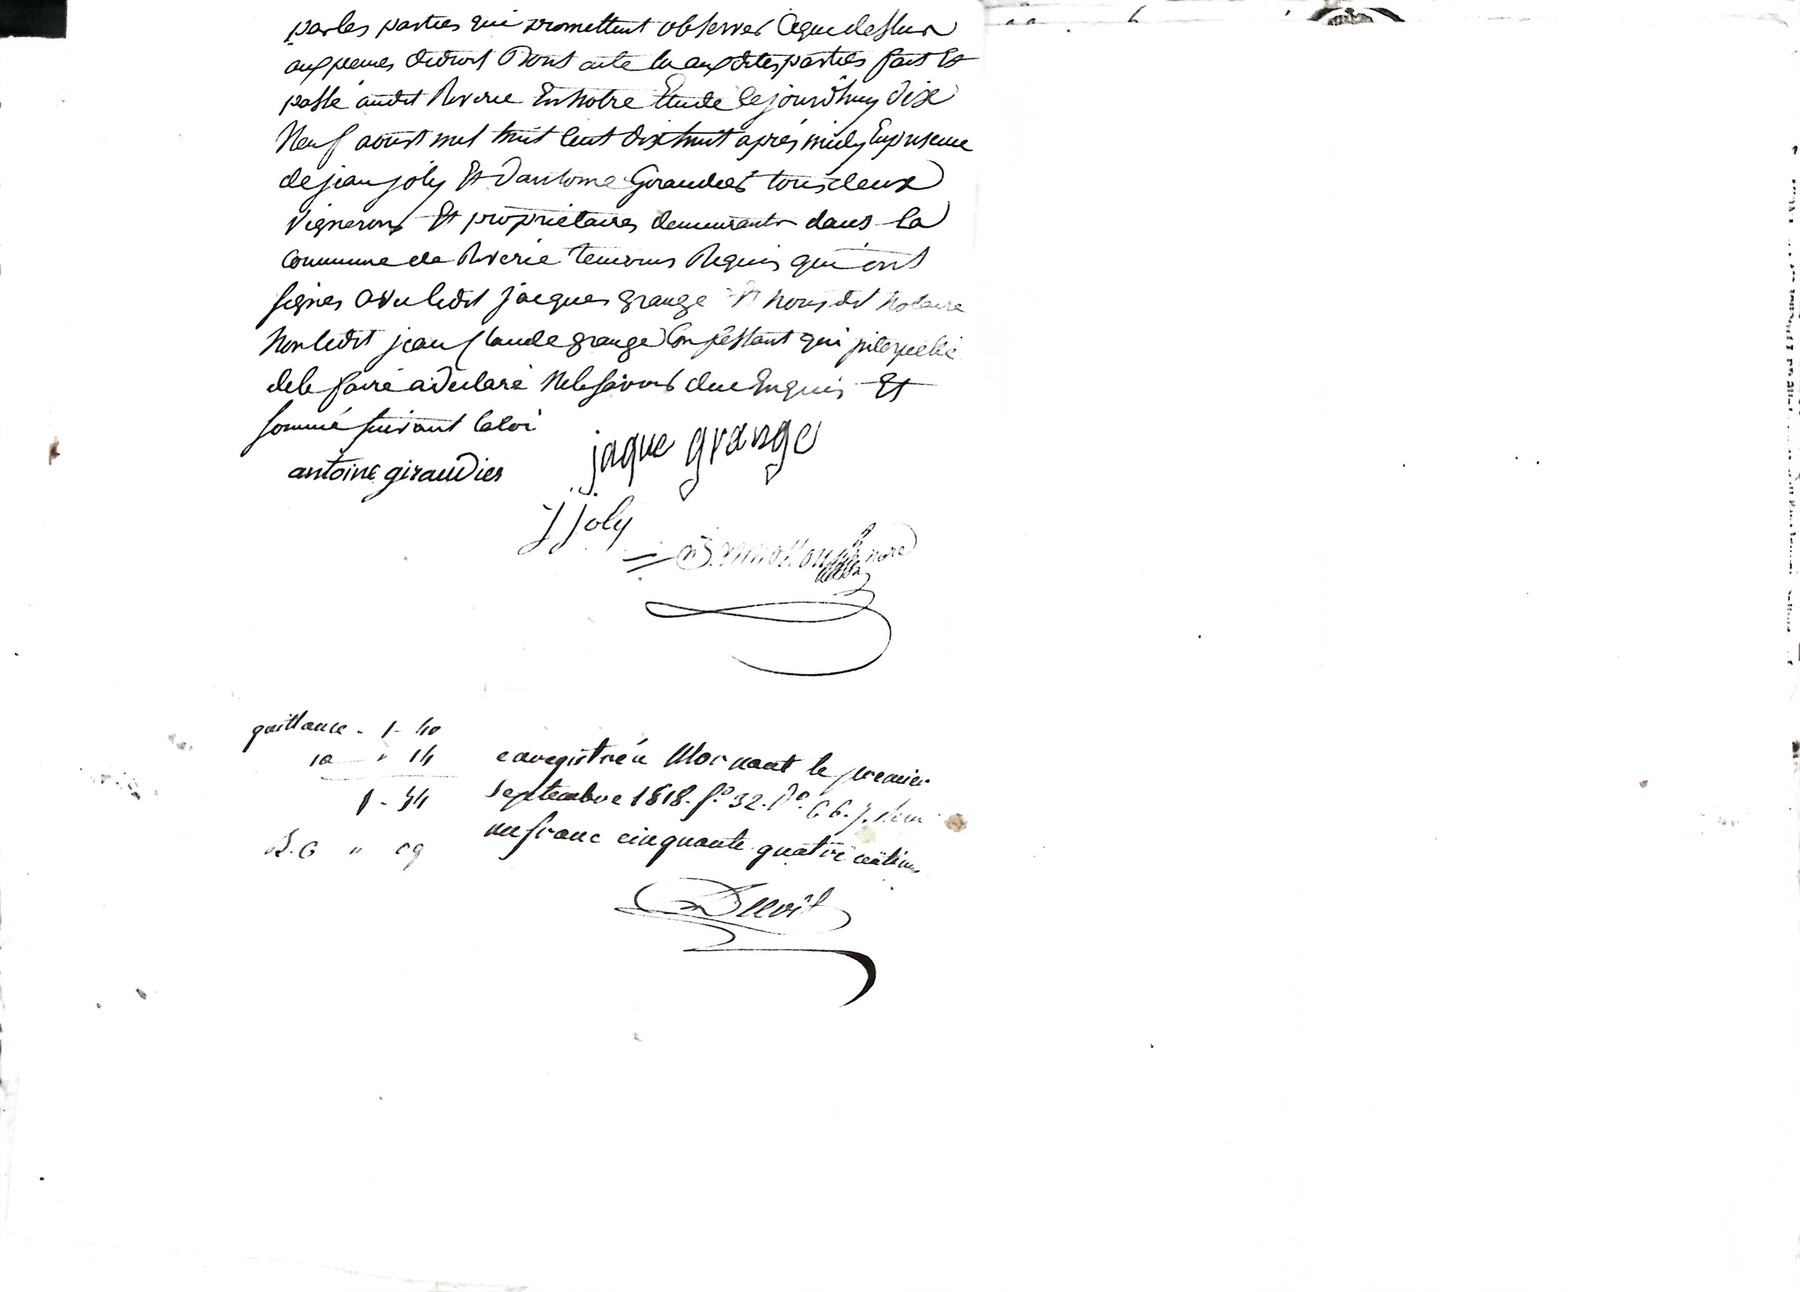 par les parties qui promettent observer ce que dessus
aux peines de droit Dont acte lu aux dites parties fait et
passé audit Riverie En notre Etude ce jourd'huy dix
Neuf aoust mil huit cent dix huit après midy En présence
de jean joly Et d'antoine Giraudier tous deux
vignerons Et propriétaires demeurants dans la
commune de Riverie temoins Requis qui ont
signés avec ledit jacques grange Et nous dit Notaire
Non ledit jean Claude grange Confessant qui
de le faire a déclaré Ne le savoir dûe Enquis Et
sommé suivant la loi
antoine giraudier jaque grange
j joly
quittance - 1 - 40
10 " 14
1 - 54
enregistré à Mornant le premier
septembre 1818. f.º 32. Rº C 6.
un franc cinquante quatre centimes
" 09